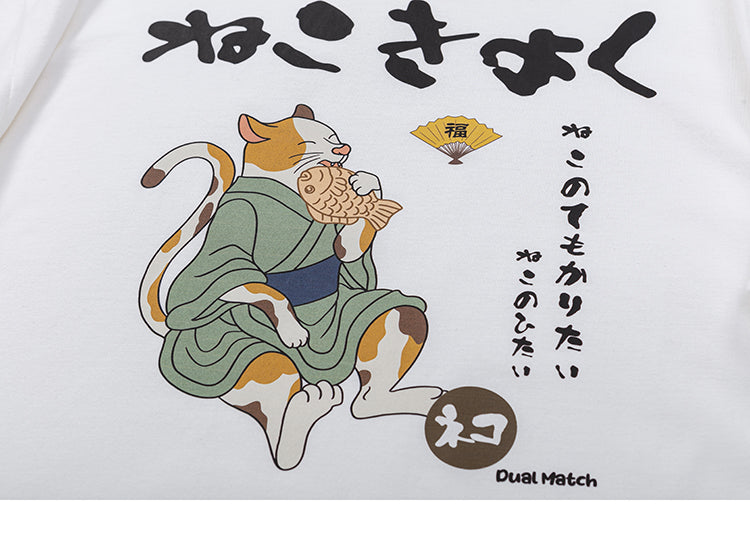 ねこきよく
福
ねこのてもかりたい
ねこのひたい
ネコ
Dual Match